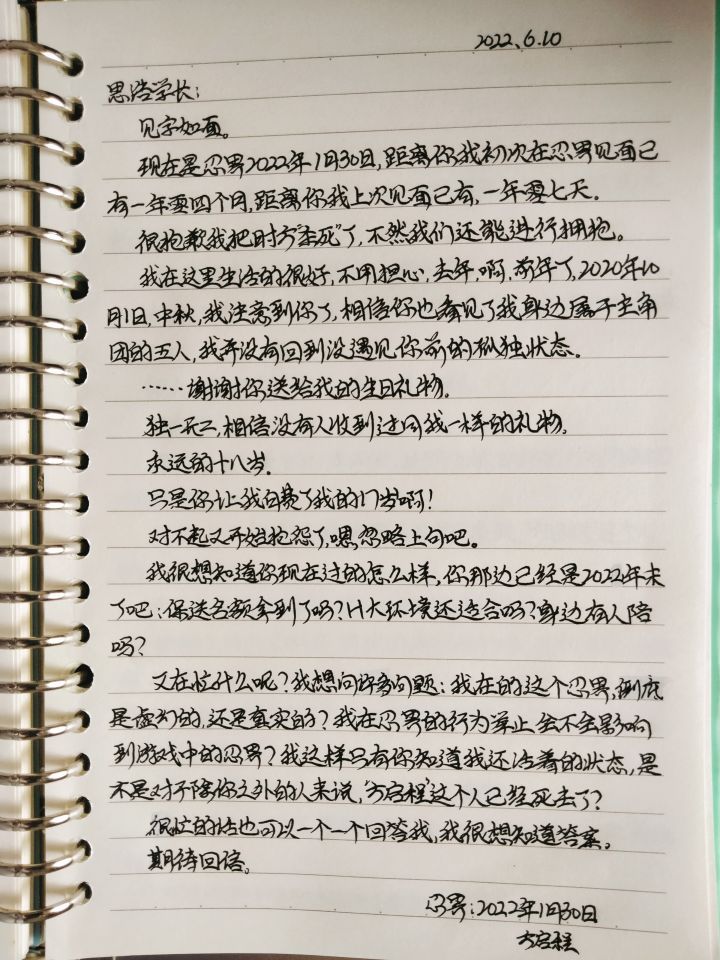 2022.6.10
思浩学长:
见字如面。
现在是忍界2022年1月30日,距离你我初次在忍界见面已
有一年零四个月,距离你我上次见面已有,一年零七天。
很抱歉我把时方“杀死”了,不然我们还能进行拥抱。
我在这里生活的很好,不用担心,去年,啊,前年了,2020年10
月1日,中秋,我注意到你了,相信你也看见了我身边属于主角
团的五人,我并没有回到没遇见你前的孤独状态。
……谢谢你送给我的生日礼物。
独一无二,相信没有人收到过同我一样的礼物。
永远的十八岁。
只是你让我白费了我的17岁啊!
对不起又开始抱怨了,嗯,忽略上句吧。
我很想知道你现在过的怎么样,你那边已经是2022年末
了吧;保送名额拿到了吗?H大环境还适合吗?身边有人陪
吗?
又在忙什么呢?我想问许多问题:我在的这个忍界,倒底
是虚幻的,还是真实的?我在忍界的行为举止会不会影响
到游戏中的忍界?我这样只有你知道我还活着的状态,是
不是对于除你之外的人来说,“方启程”这个人已经死去了?
很忙的话也可以一个一个回答我,我很想知道答案。
期待回信。
忍界:2022年1月30日
方启程